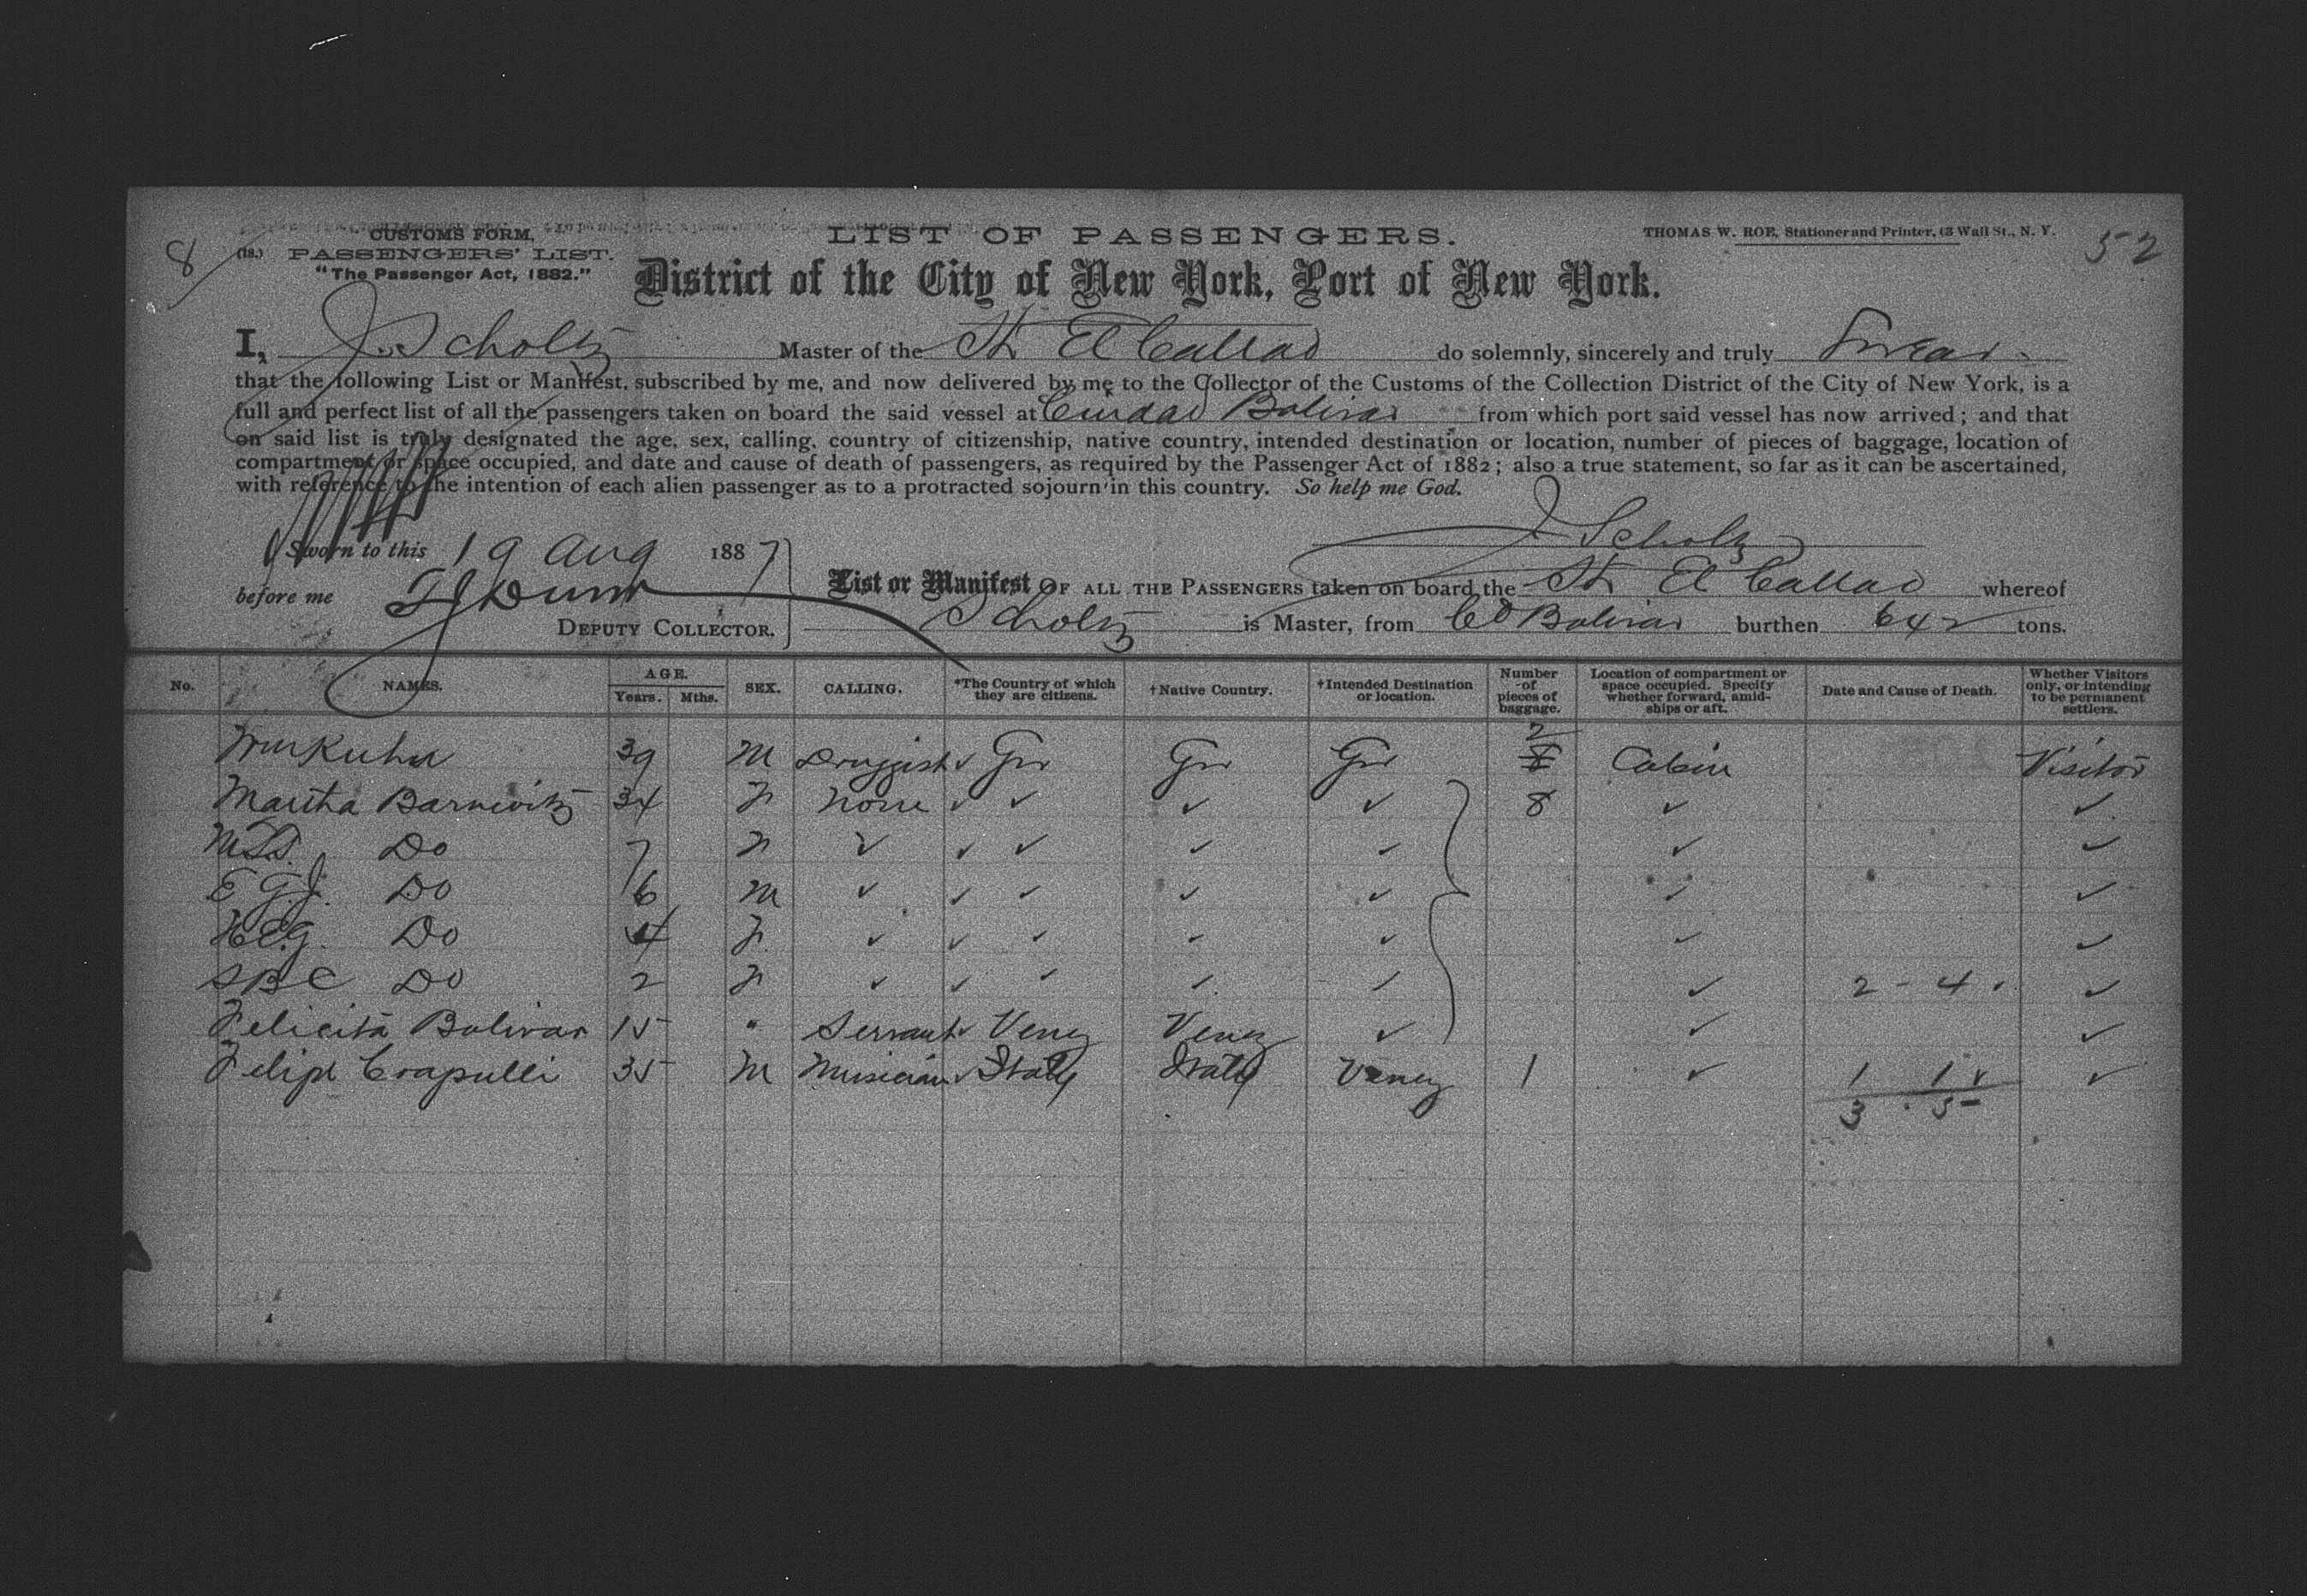 8
(18.) CUSTOMS FORM,
PASSENGERS' LIST.
"The Passenger Act, 1882."
LIST OF PASSENGERS.
THOMAS W. ROE, Stationer and Printer, 63 Wall St., N. Y.
52
District of the City of New York, Port of New York.
I, J. Scholtz Master of the Str El Callao do solemnly, sincerely and truly Swear
that the following List or Manifest, subscribed by me, and now delivered by me to the Collector of the Customs of the Collection District of the City of New York, is a
full and perfect list of all the passengers taken on board the said vessel at Ciudad Bolivar from which port said vessel has now arrived; and that
on said list is truly designated the age, sex, calling, country of citizenship, native country, intended destination or location, number of pieces of baggage, location of
compartment or space occupied, and date and cause of death of passengers, as required by the Passenger Act of 1882; also a true statement, so far as it can be ascertained,
with reference to the intention of each alien passenger as to a protracted sojourn in this country. So help me God.
J Scholtz
Sworn to this 19 Aug 1887
before me Dunn
DEPUTY COLLECTOR.
List or Manifest OF ALL THE PASSENGERS taken on board the Str El Callao whereof
Scholtz is Master, from Cd Bolivar burthen 642 tons.
No. NAMES. AGE. Years. Mths. SEX. CALLING. *The Country of which they are citizens. †Native Country. †Intended Destination or location. Number of pieces of baggage. Location of compartment or space occupied. Specify whether forward, amidships or aft. Date and Cause of Death. Whether Visitors only, or intending to be permanent settlers.
Wm Kuhn 39 M Druggist ✓ Gr Gr Gr 2 Cabin Visitor
Martha Barnewitz 34 F None ✓ ✓ ✓ ✓ 8 ✓ ✓
Do 7 F ✓ ✓ ✓ ✓ ✓ ✓ ✓
E G.J. Do 6 M ✓ ✓ ✓ ✓ ✓ ✓ ✓
H E.G. Do 4 F. ✓ ✓ ✓ ✓ ✓ ✓ ✓
S B C Do 2 F ✓ ✓ ✓ ✓ ✓ ✓ 2 - 4 ✓
Felicita Bolivar 15 " Servant ✓ Venez Venez ✓ ✓ ✓
Felipe Crapulli 35 M Musician ✓ Italy Italy Venez 1 ✓ 1 1 ✓ ✓
3 . 5